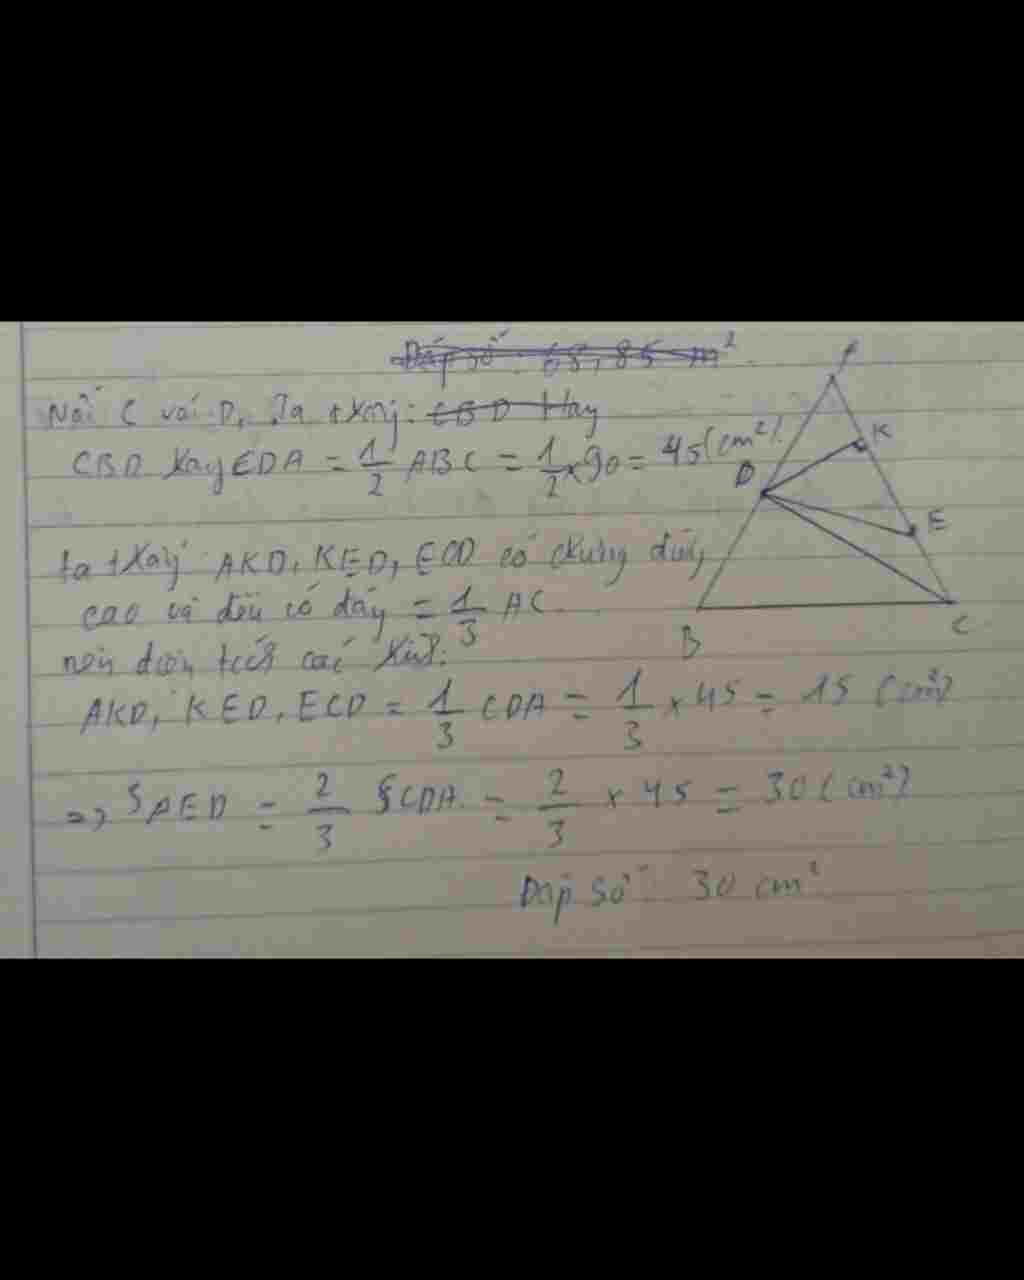 Đáp số : 68,85 m²
Nối C với D, Ta thấy: CBD Hay
CBD hay CDA = 1/2 ABC = 1/2 x 90 = 45 (cm²).
ta thấy AKD, KED, ECD có chung đường
cao và đều có đáy = 1/3 AC.
nên diện tích các hình:
AKD, KED, ECD = 1/3 CDA = 1/3 x 45 = 15 (cm²)
=> SAED = 2/3 SCDA = 2/3 x 45 = 30 (cm²)
Đáp số 30 cm²
A
K
D
E
B
C